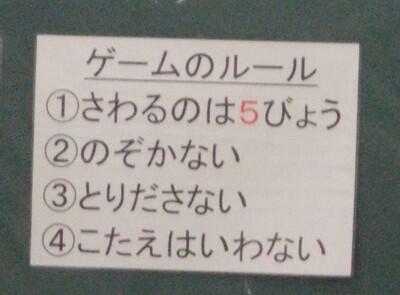 ゲームのルール
①さわるのは5びょう
②のぞかない
③とりださない
④こたえはいわない